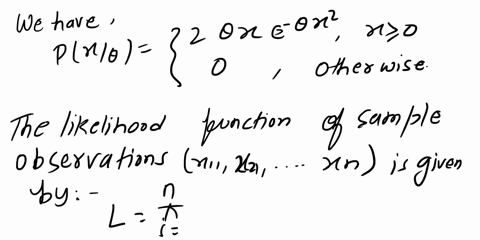 We have,
P(x/θ) = { 2 θx e^-θx², x≥0
0 , otherwise.
The likelihood function of sample
observations (x1, x2, .... xn) is given
by:-
L = n
π
i=